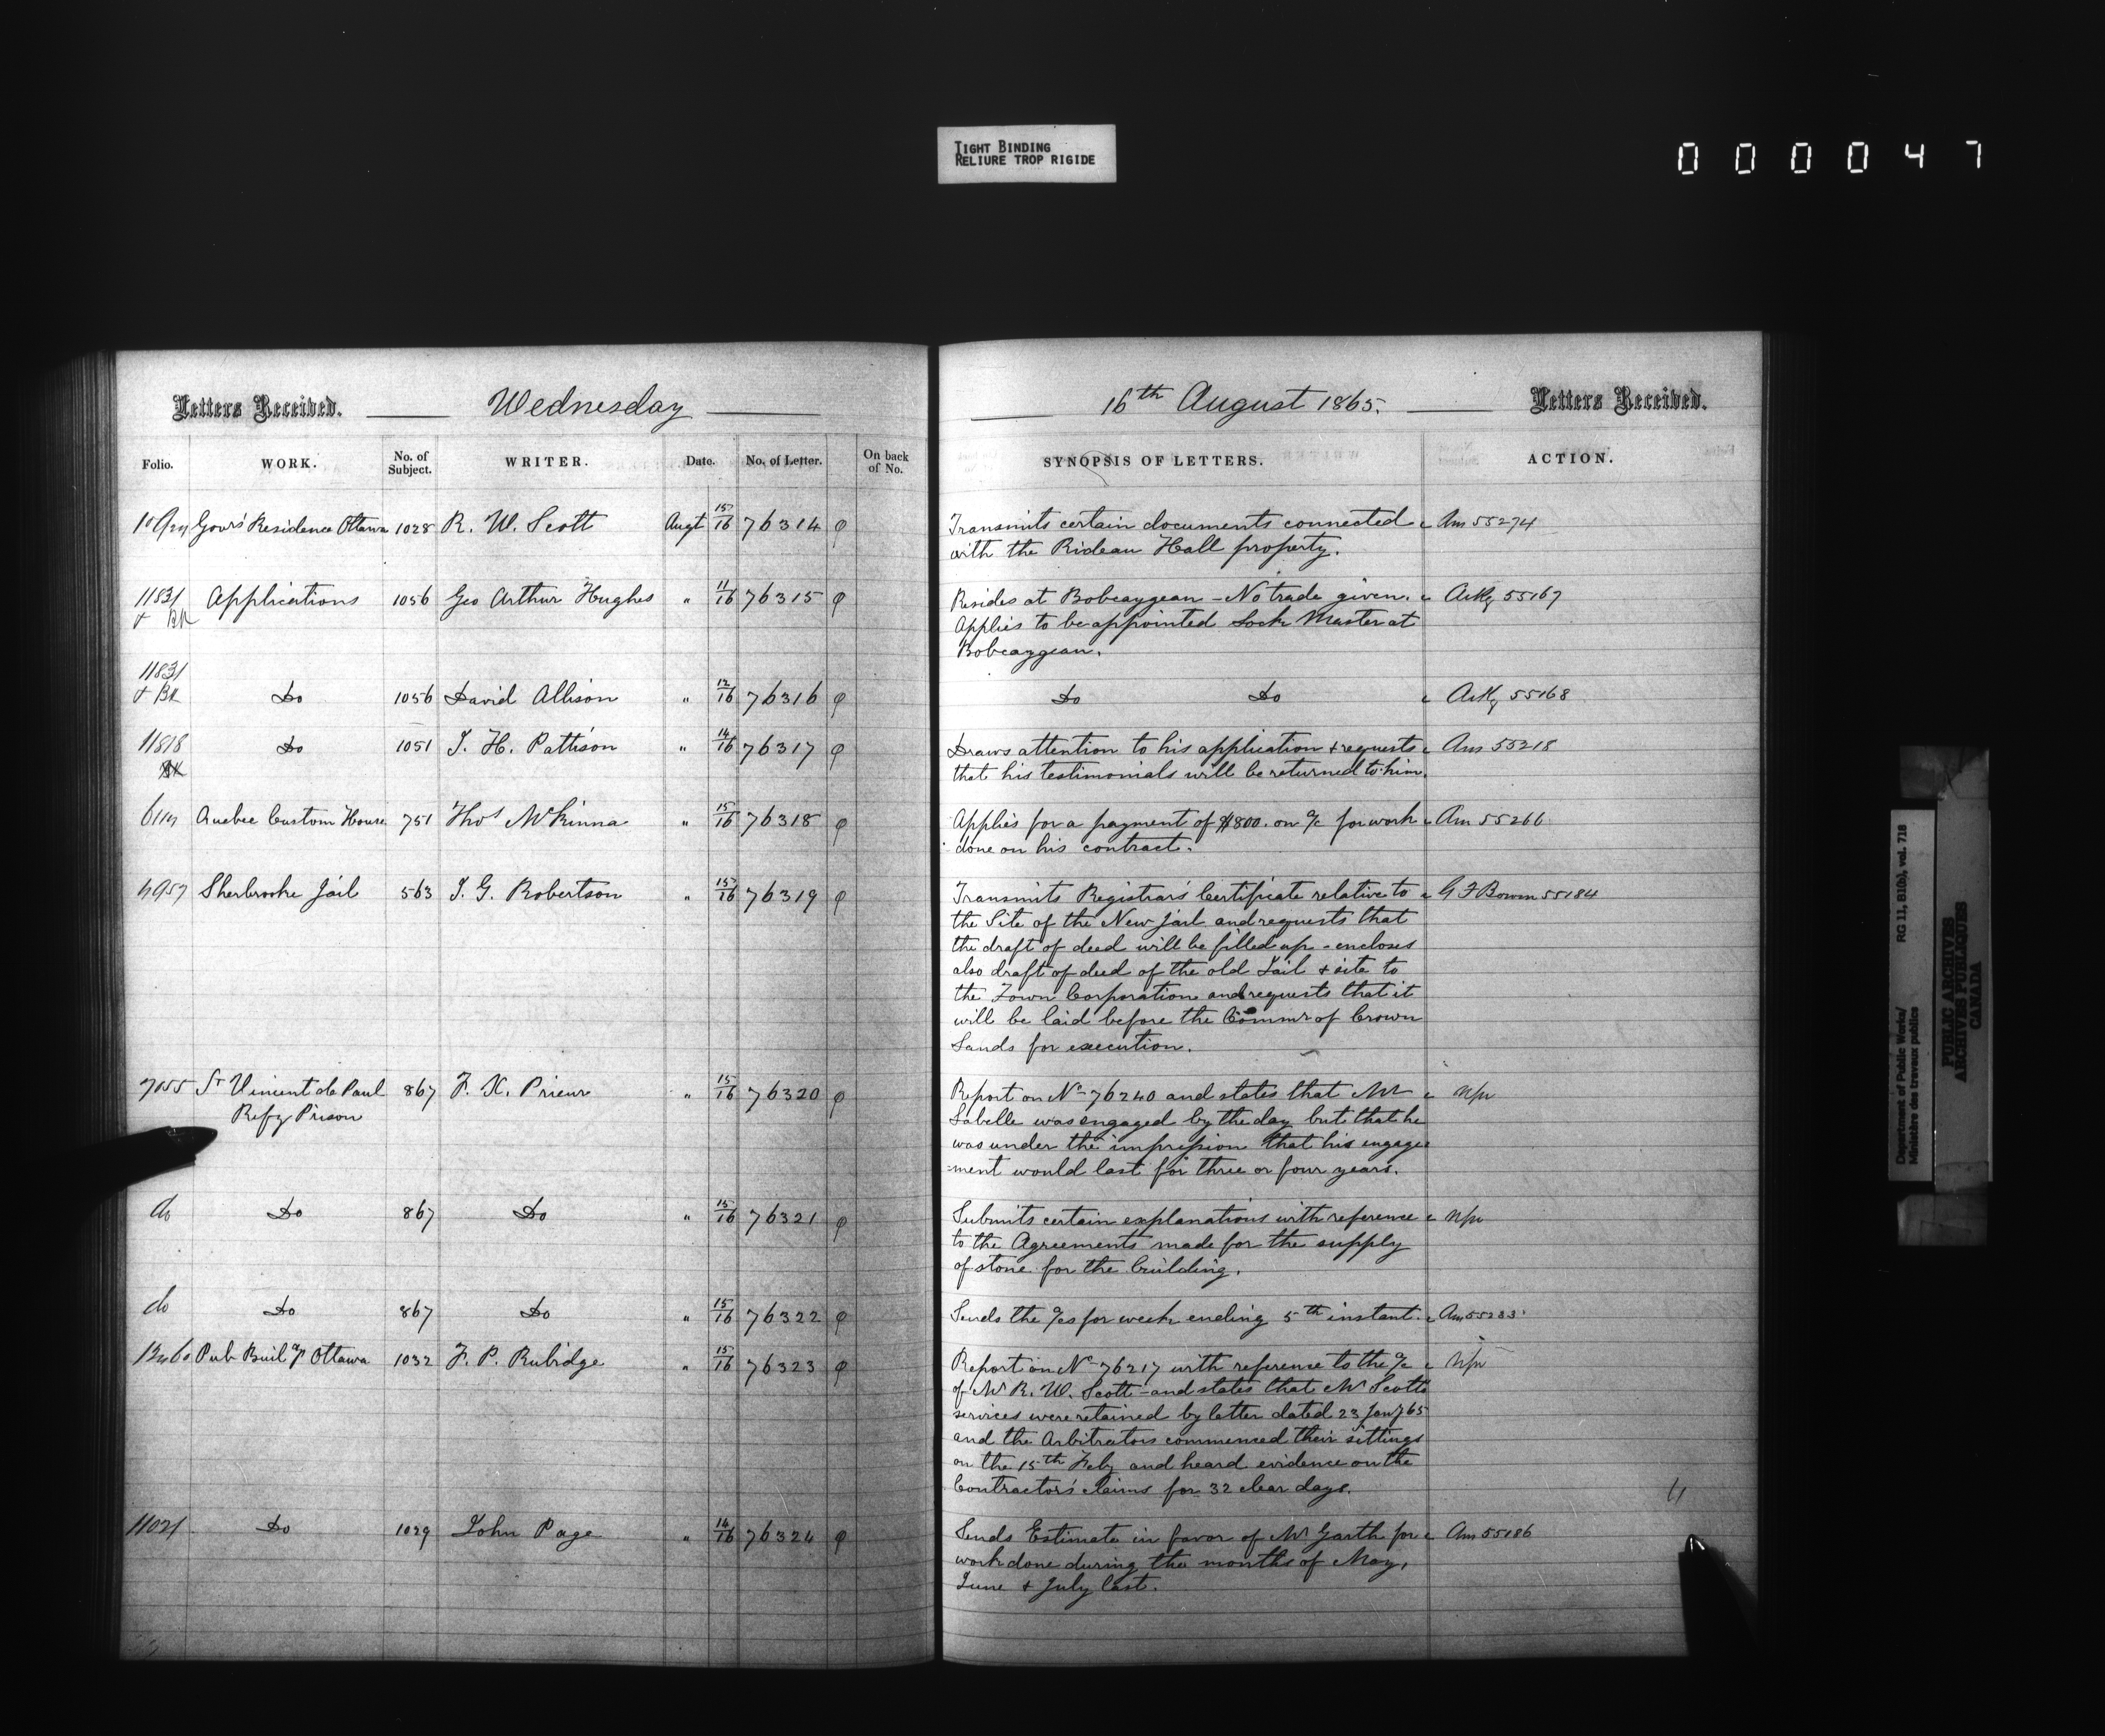 TIGHT BINDING
RELIURE TROP RIGIDE
000047
Letters Received. Wednesday
Folio. WORK. No. of Subject. WRITER. Date. No. of Letter. On back of No.
Govrs Residence Ottawa 1028 R. W. Scott Augt 15/16 76314
11831 Applications 1056 Geo Arthur Hughes " 11/16 76315
& BK
11831
& BK Do 1056 David Allison " 12/16 76316
11818 Do 1051 J. H. Pattison " 14/16 76317
BK
Quebec Custom House 751 Thos McKinna " 15/16 76318
Sherbrooke Jail 563 J. G. Robertson " 15/16 76319
7055 St Vincent de Paul 867 F. X. Prieur " 15/16 76320
Refy Prison
do Do 867 Do " 15/16 76321
do Do 867 Do " 15/16 76322
Pub Buildgs Ottawa 1032 F. P. Rubidge " 15/16 76323
11021 Do 1029 John Page " 14/16 76324
16th August 1865. Letters Received.
SYNOPSIS OF LETTERS. ACTION.
Transmits certain documents connected Ans 55274
with the Rideau Hall property.
Resides at Bobcaygean - No trade given. Ackg 55167
Applies to be appointed Lock Master at
Bobcaygean.
Do Do Ackg 55168
Draws attention to his application & requests Ans 55218
that his testimonials will be returned to him.
Applies for a payment of $800. on a/c for work Ans 55266
done on his contract.
Transmits Registrar's Certificate relative to G F Bowen 55184
the Site of the New Jail and requests that
the draft of deed will be filled up - encloses
also draft of deed of the old Jail & site to
the Town Corporation and requests that it
will be laid before the Commr of Crown
Lands for execution.
Report on No 76240 and states that Mr npr
Labelle was engaged by the day but that he
was under the impression that his engage
-ment would last for three or four years.
Submits certain explanations with reference npr
to the Agreements made for the supply
of stone for the building.
Sends the a/cs for week ending 5th instant. Ans 55233
Report on No 76217 with reference to the a/c npr
of Mr R. W. Scott - and states that Mr Scott's
services were retained by letter dated 23 Jany 65
and the Arbitrators commenced their sittings
on the 15th Feby and heard evidence on the
Contractor's claims for 32 clear days.
Sends Estimate in favor of Mr Garth for Ans 55186
work done during the months of May,
June & July last.
Department of Public Works/ RG 11, B1(b), vol. 718
Ministère des travaux publics
PUBLIC ARCHIVES
ARCHIVES PUBLIQUES
CANADA